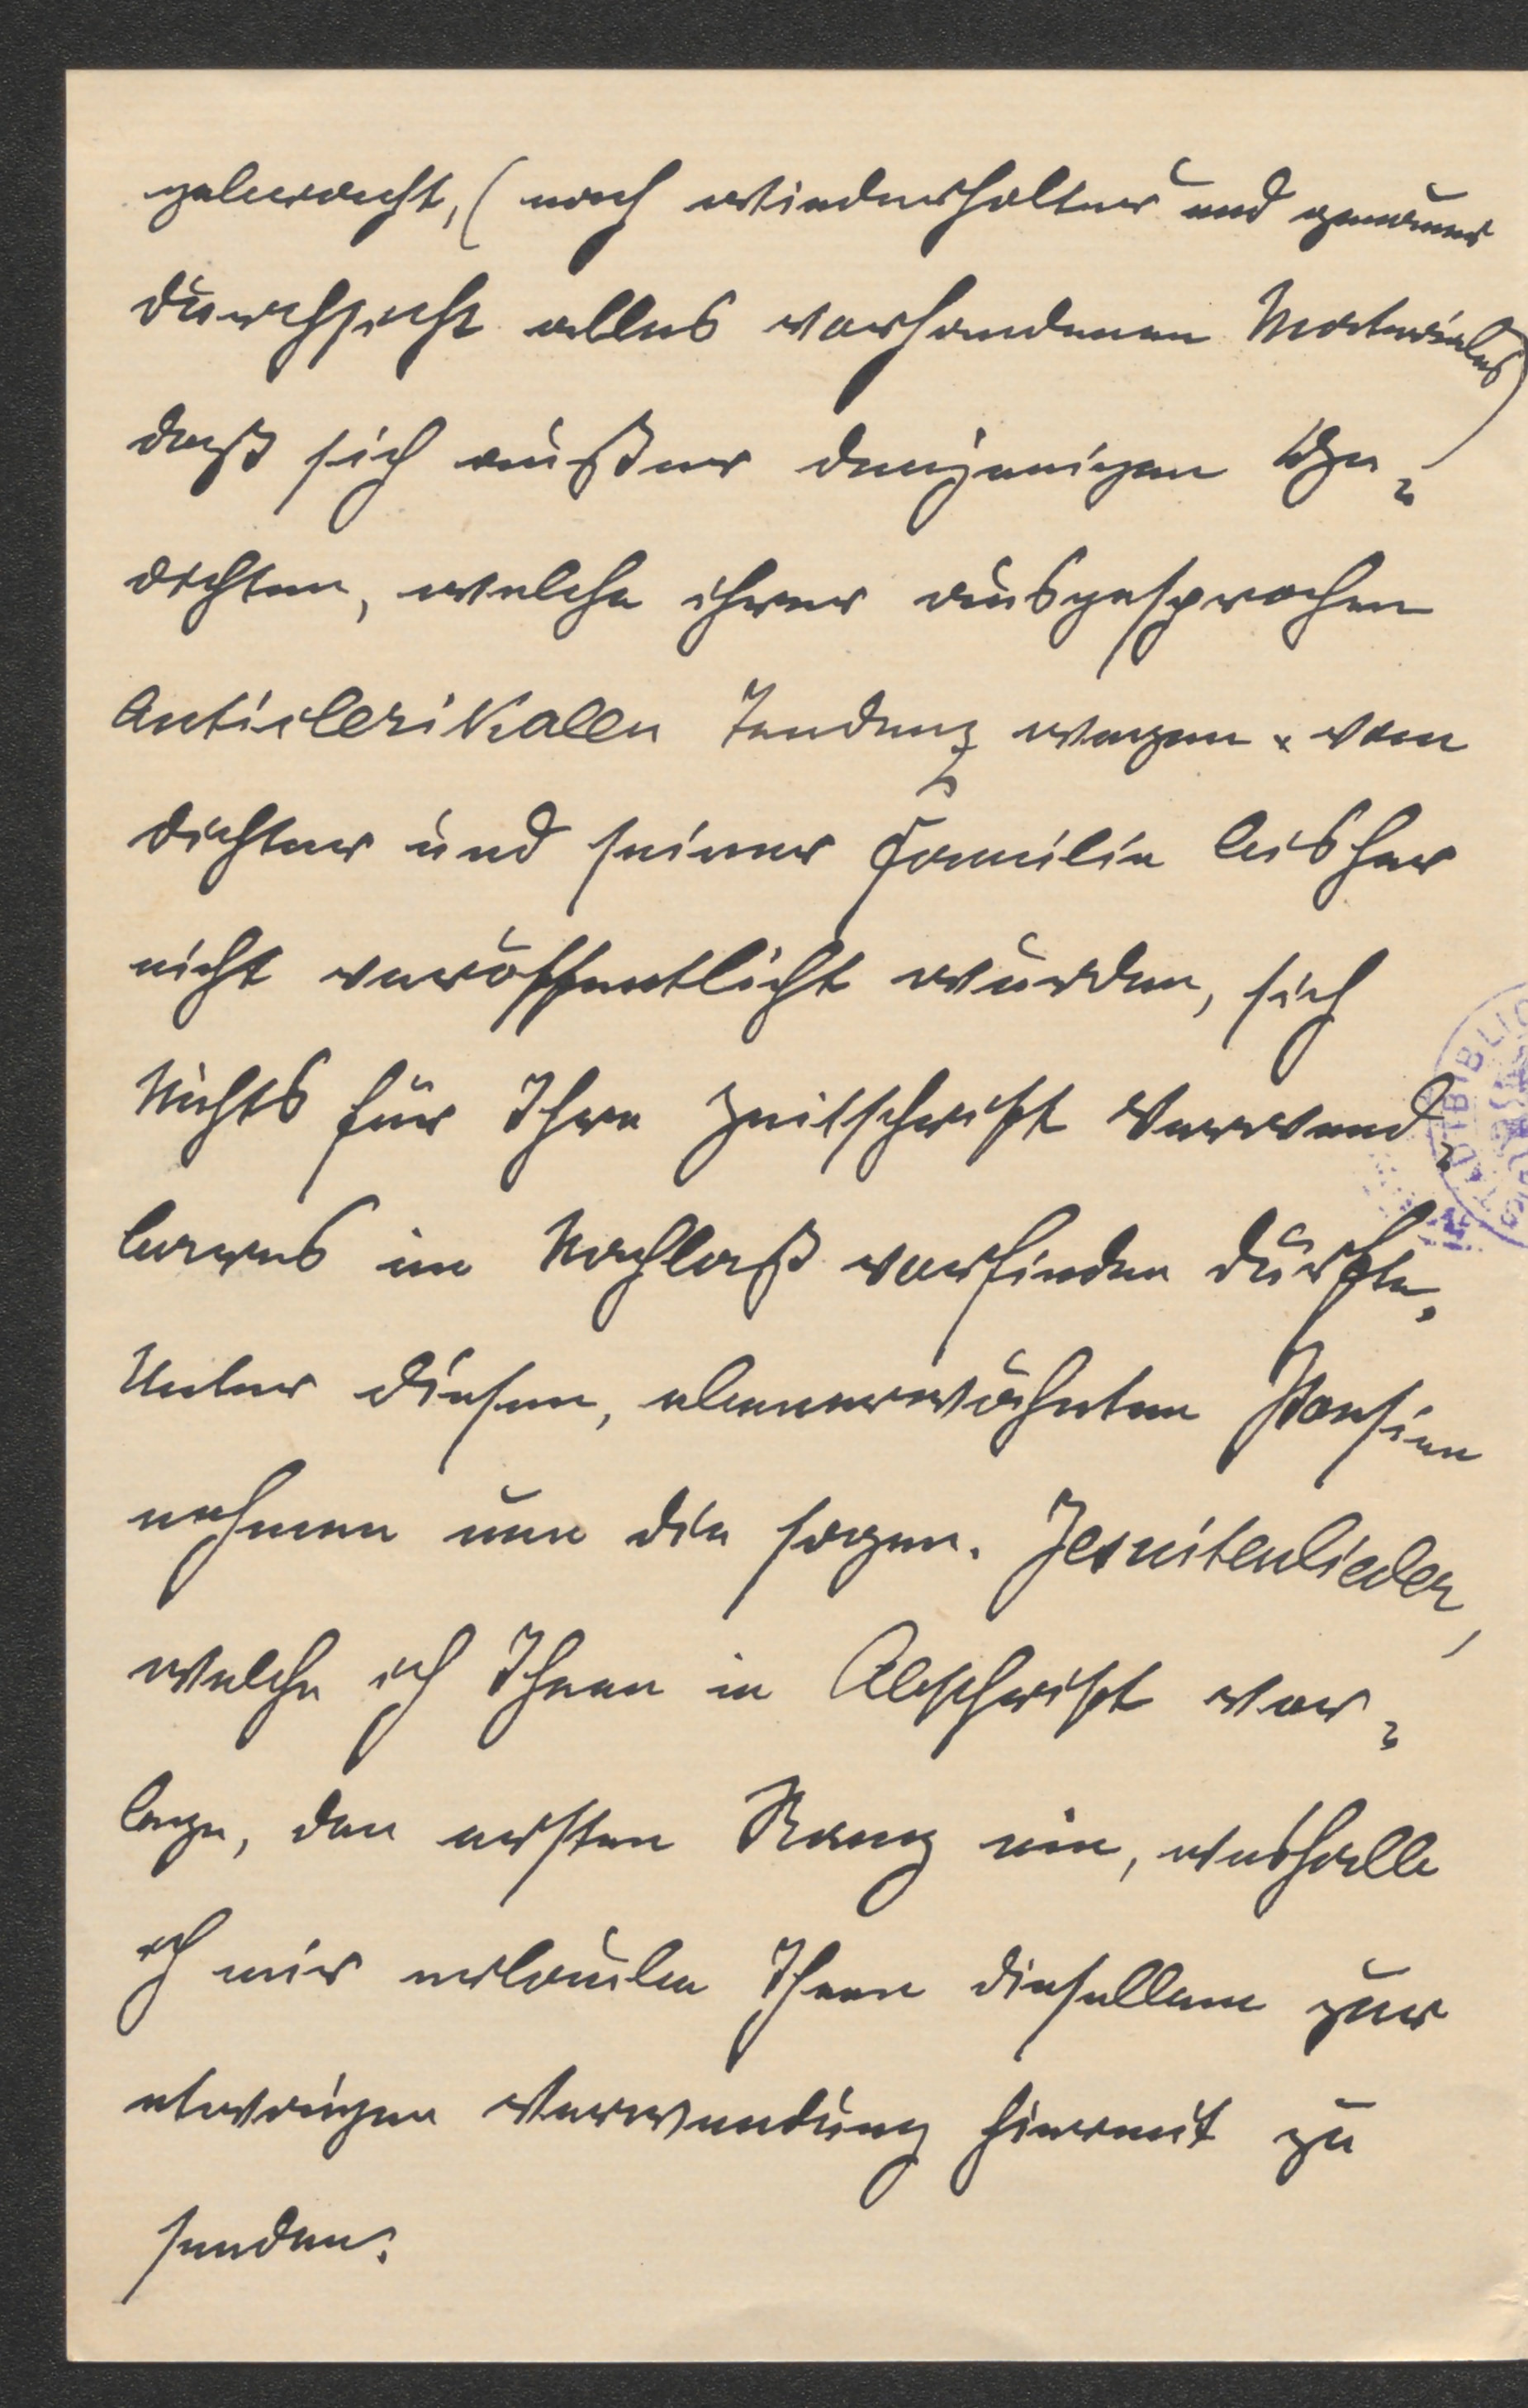 gebracht, (nach wiederholter und genauer
Durchsicht alles vorhandenen Materiales)
daß sich außer denjenigen Ge-
dichten, welche ihrer ausgesprochen
anticlerikalen Tendenz wegen vom
Dichter und seiner Familie bisher
nicht veröffentlicht wurden, sich
Nichts für Ihre Zeitschrift Verwend-
bares im Nachlaß vorfinden dürfte.
Unter diesen, ebenerwähnten Poesien
nehmen nun die sogen. Jesuitenlieder,
welche ich Ihnen in Abschrift vor-
lege, den ersten Rang ein, weshalb
ich mir erlaube Ihnen dieselben zur
etwaigen Verwendung hiermit zu
senden.